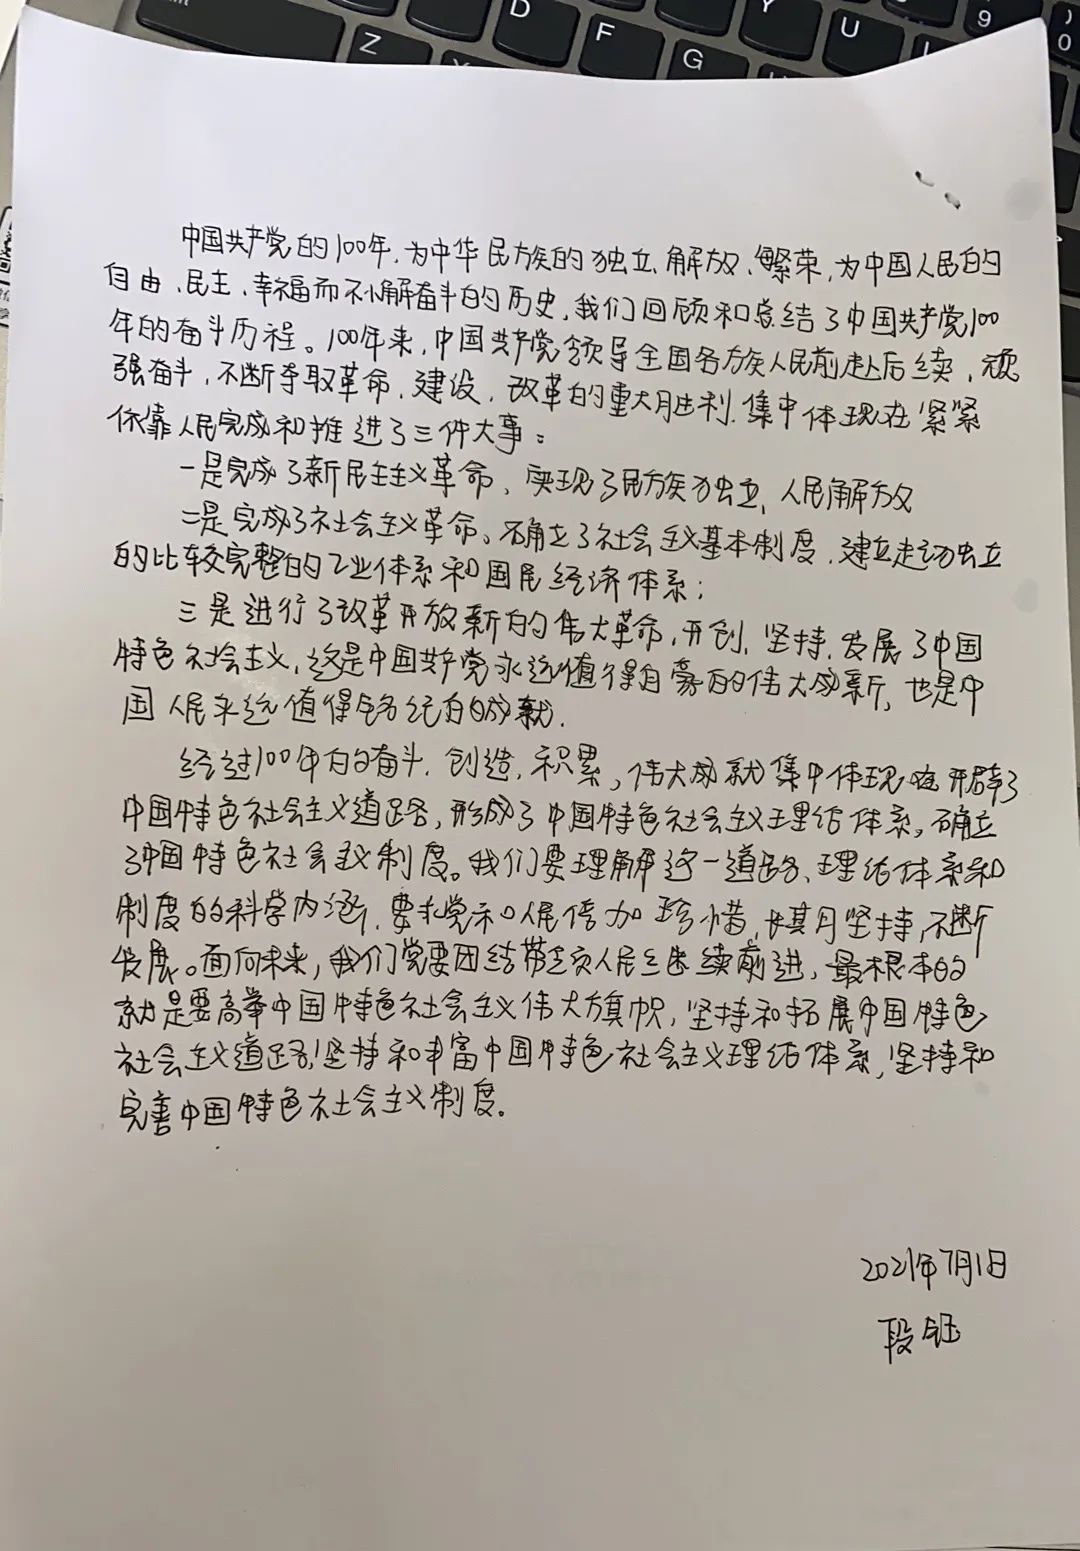 D F G Y U 9 0
Z
中国共产党的100年,为中华民族的独立、解放、繁荣,为中国人民的
自由、民主、幸福而不懈奋斗的历史,我们回顾和总结了中国共产党100
年的奋斗历程。100年来,中国共产党领导全国各族人民前赴后续,顽
强奋斗,不断夺取革命、建设、改革的重大胜利.集中体现在紧紧
依靠人民完成和推进了三件大事:
一是完成了新民主主义革命、实现了民族独立、人民解放
二是完成了社会主义革命、确立了社会主义基本制度,建立起独立
的比较完整的工业体系和国民经济体系;
三是进行了改革开放新的伟大革命,开创,坚持,发展了中国
特色社会主义,这是中国共产党永远值得自豪的伟大成,也是中
国人民永远值得铭记的成就.
经过100年的奋斗,创造,积累,伟大成就集中体现开辟了
中国特色社会主义道路,形成了中国特色社会主义理论体系,确立
了中国特色社会主义制度。我们要理解这一道路、理论体系和
制度的科学内涵,要求党和人民倍加珍惜,长期坚持,不断
发展。面向未来,我们党要团结带领人民继续前进,最根本的
就是要高举中国特色社会主义伟大旗帜,坚持和拓展中国特色
社会主义道路,坚持和丰富中国特色社会主义理论体系,坚持和
完善中国特色社会主义制度.
2021年7月1日
段钰